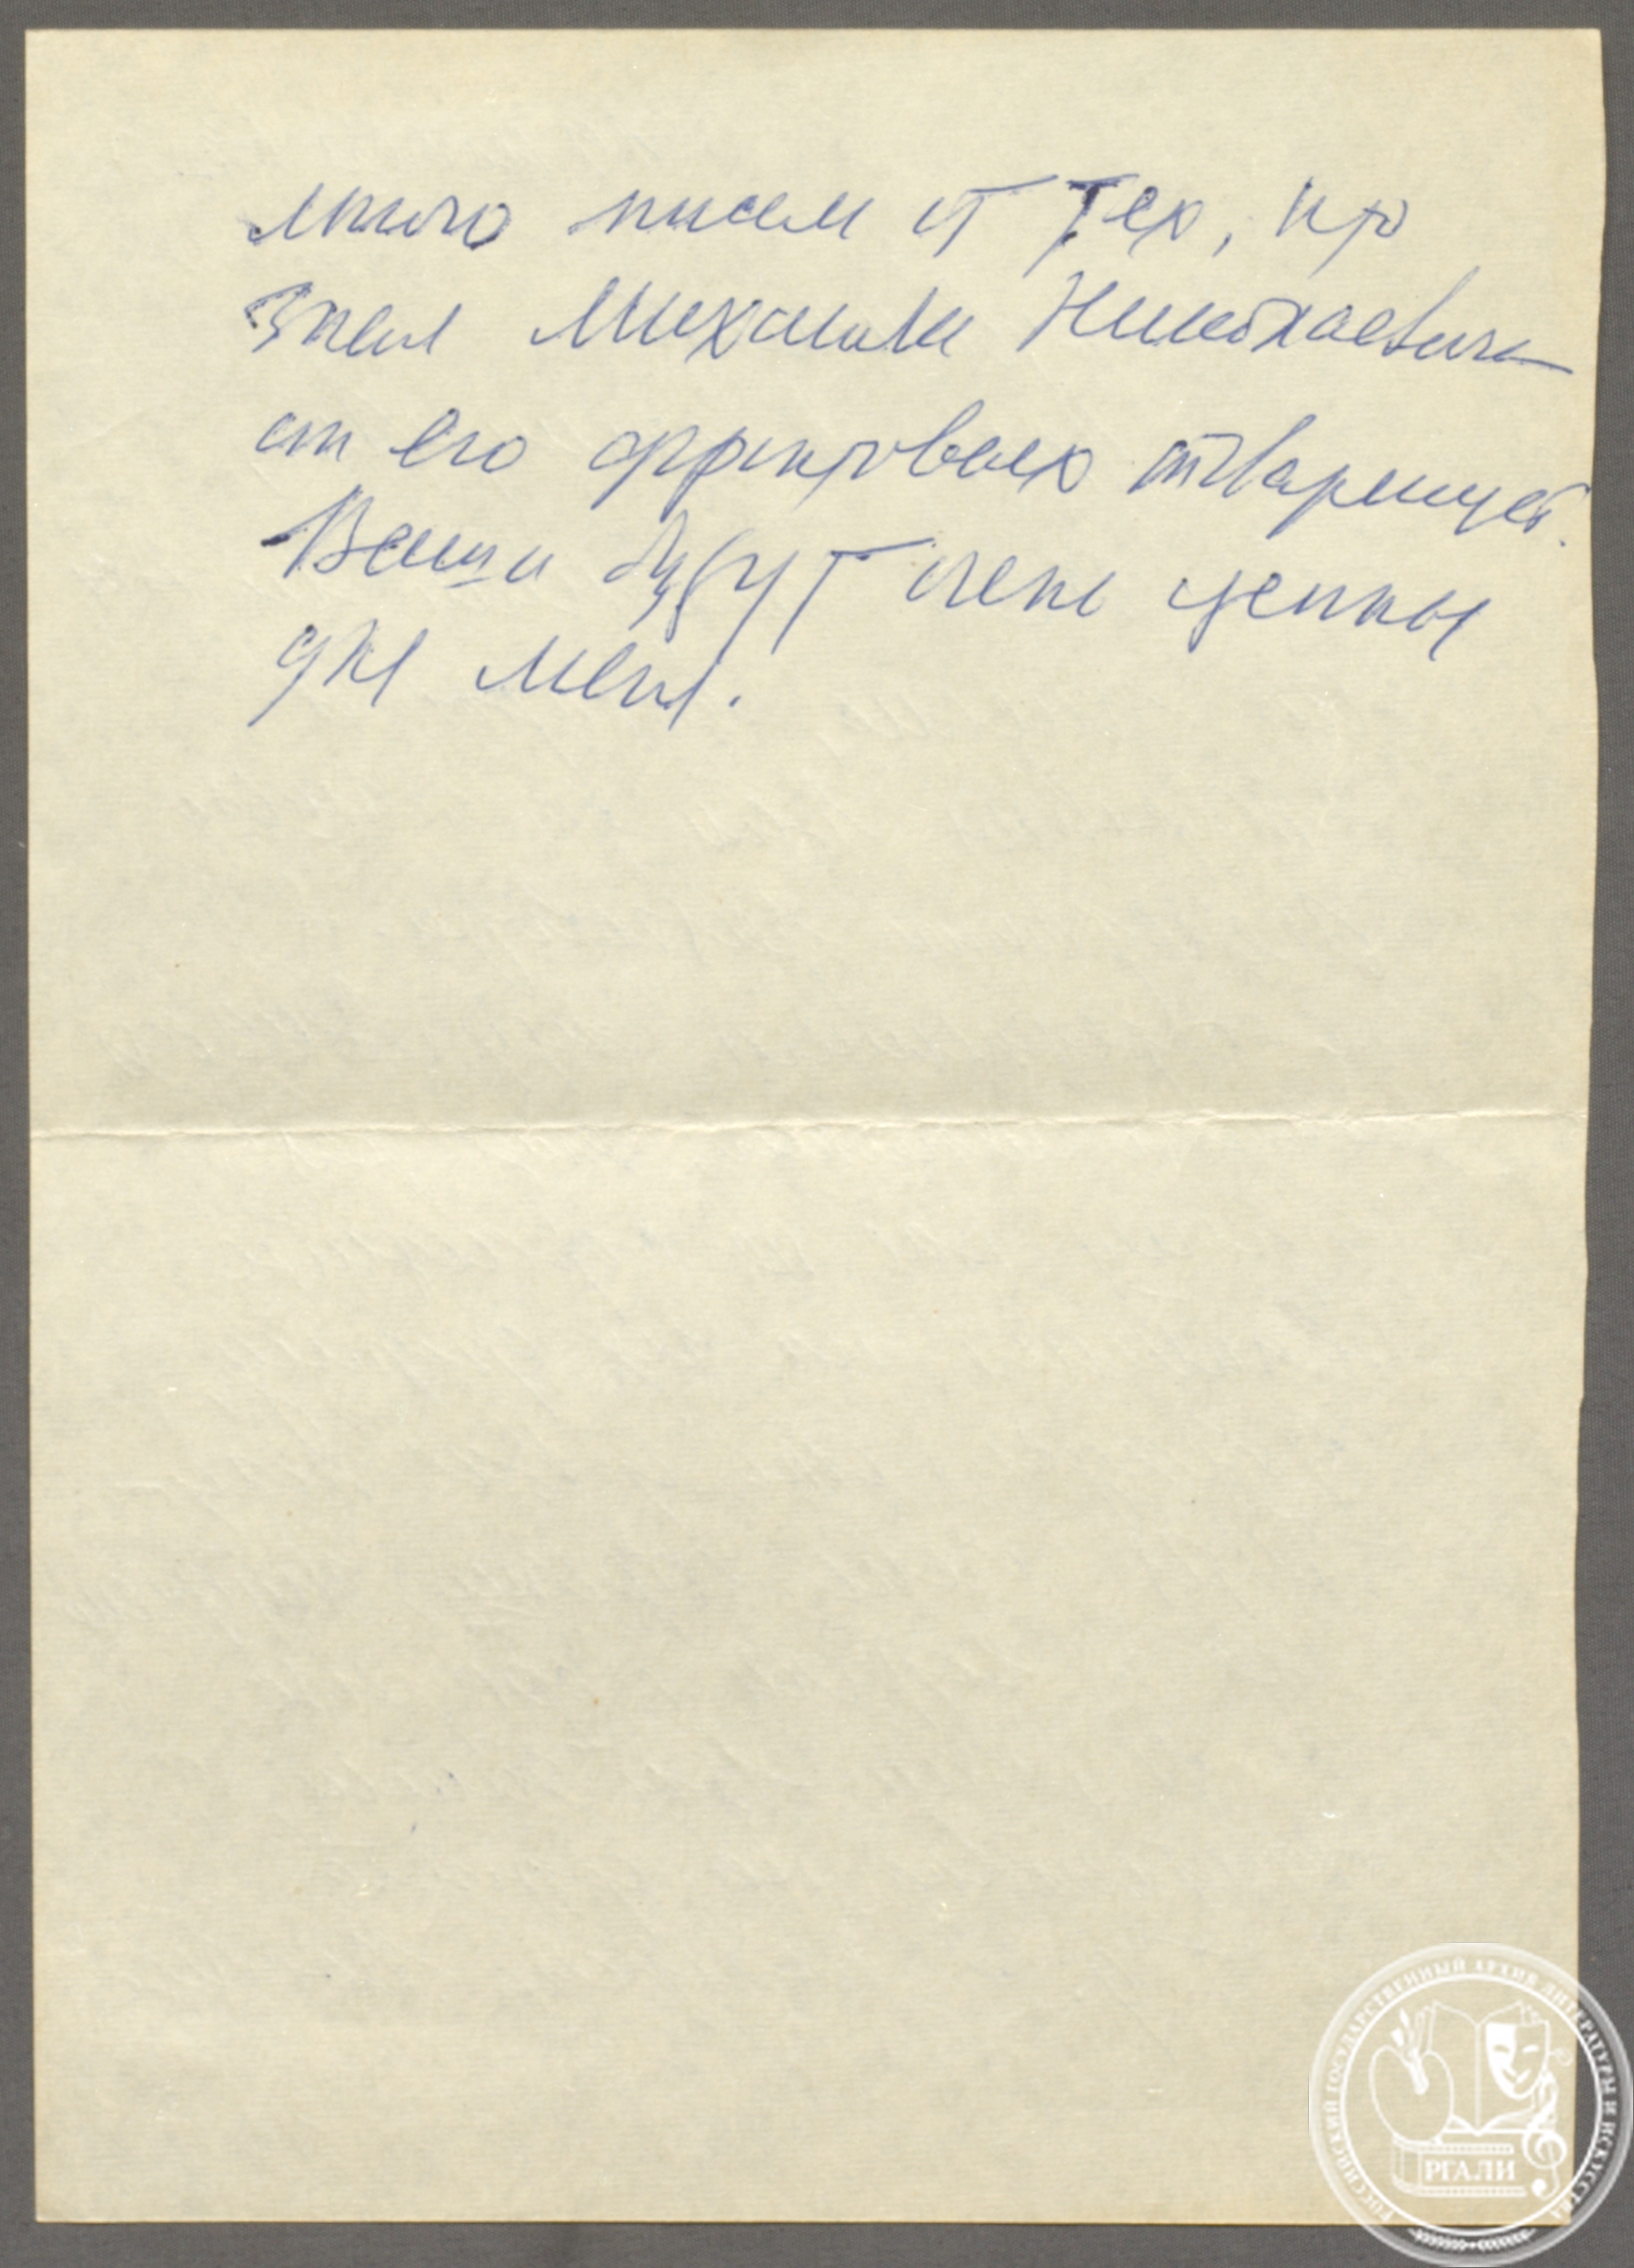 много писем от тех, кто
знал Михаила Николаевича
от его фронтовых товарищей.
Ваши будут очень ценны
для меня.
РОССИЙСКИЙ ГОСУДАРСТВЕННЫЙ АРХИВ ЛИТЕРАТУРЫ И ИСКУССТВА
РГАЛИ